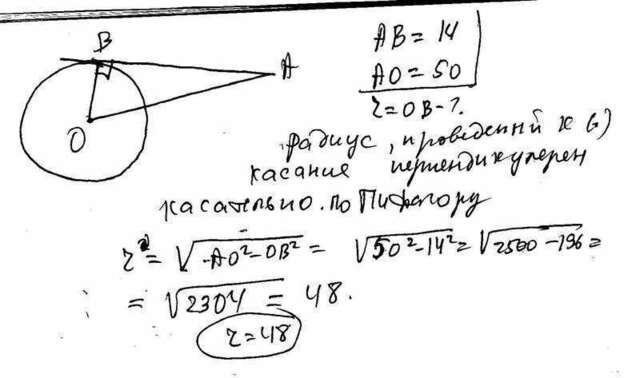 B
A
O
AB = 14
AO = 50
r = OB - ?
радиус, проведенный к
касание перпендикулерен
касательно. по Пифагору
r² = √AO² - OB² = √50² - 14² = √2500 - 196 =
= √2304 = 48.
r = 48